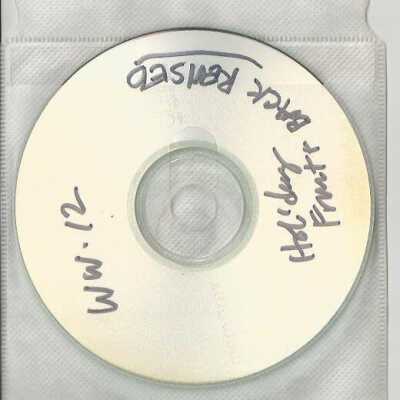 WW-12
Holiday
Front + BACK REVISED